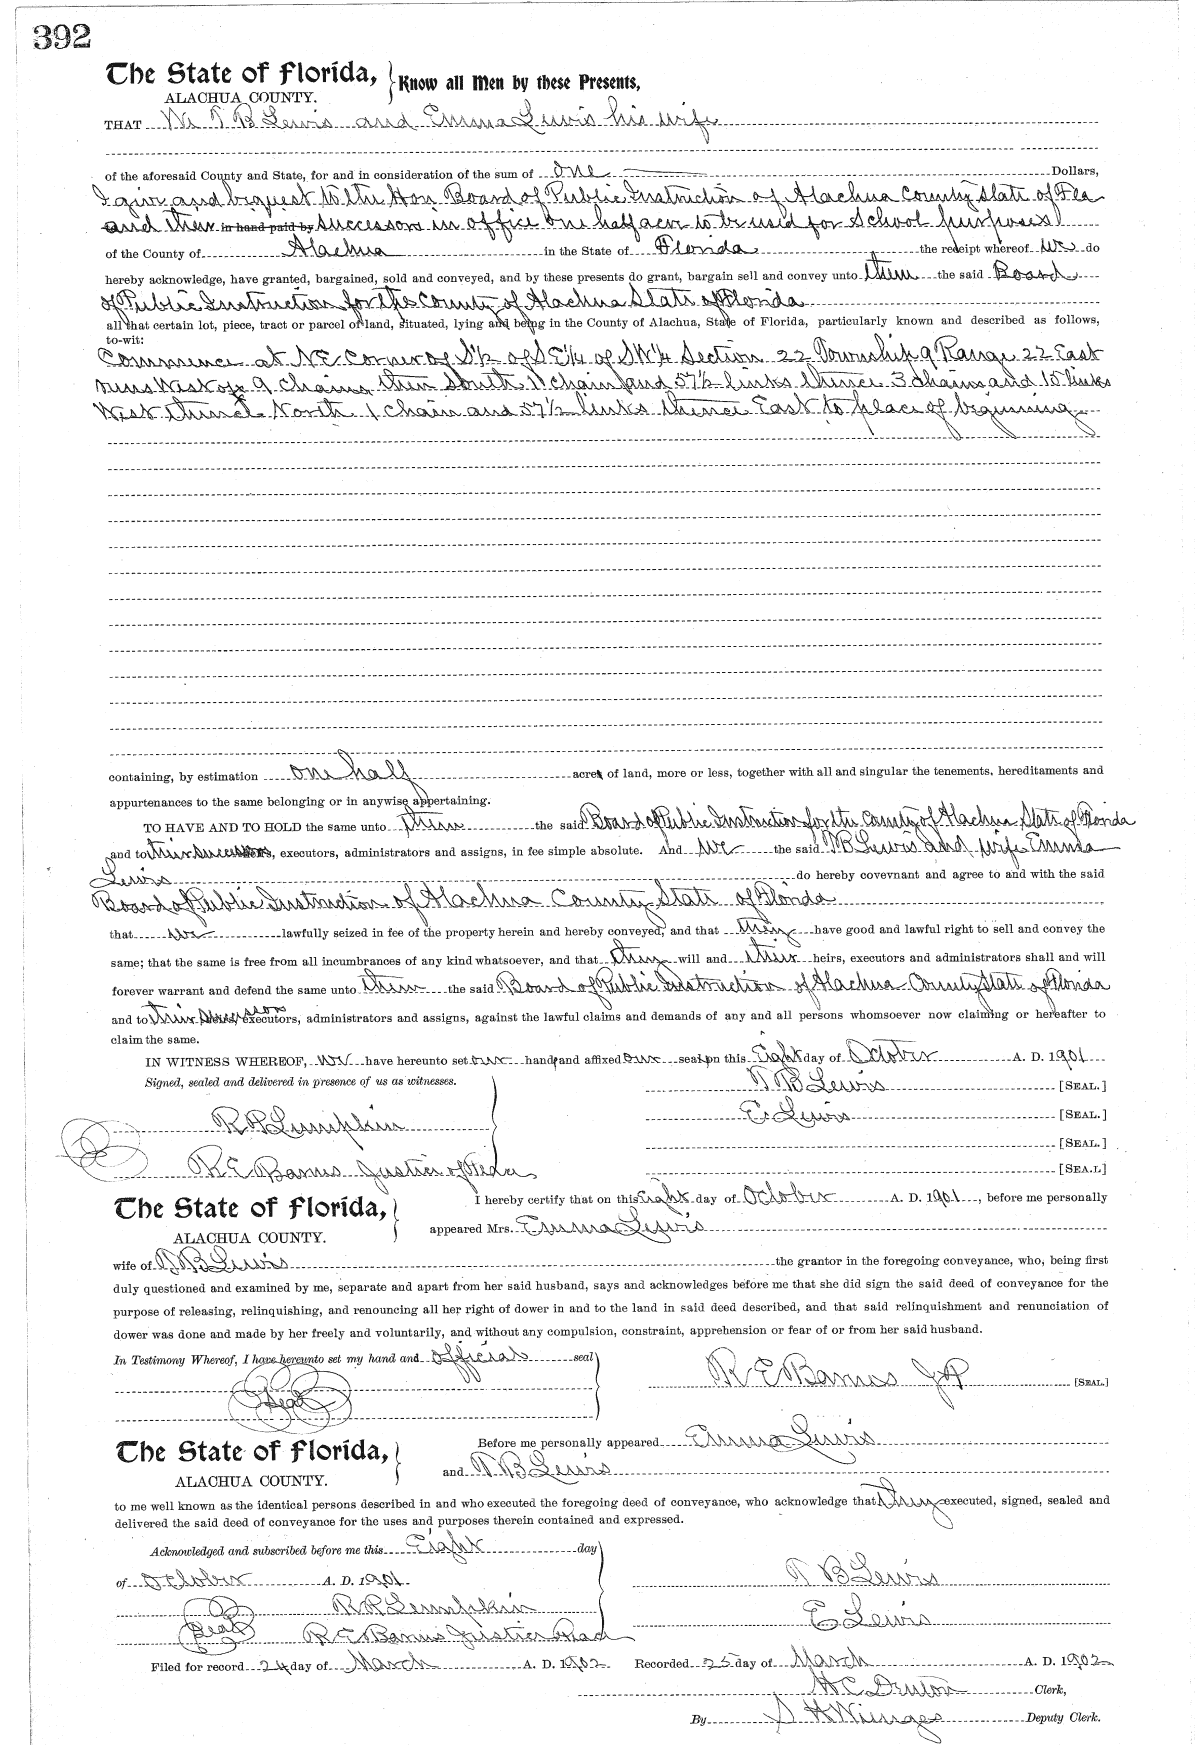 392
The State of Florida, } Know all Men by these Presents,
ALACHUA COUNTY.
THAT We T B Lewis and Emma Lewis his wife
of the aforesaid County and State, for and in consideration of the sum of one Dollars,
I give and bequest to the Hon Board of Public Instruction of Alachua County State of Fla
and their in hand paid by successors in office one half acre to be used for School purposes
of the County of Alachua in the State of Florida the receipt whereof we do
hereby acknowledge, have granted, bargained, sold and conveyed, and by these presents do grant, bargain sell and convey unto them the said Board
of Public Instruction for the County of Alachua State of Florida
all that certain lot, piece, tract or parcel of land, situated, lying and being in the County of Alachua, State of Florida, particularly known and described as follows,
to-wit:
Commence at NE Corner of S½ of SE¼ of SW¼ Section 22 Township 9 Range 22 East
runs West 9 chains then South 1 chain and 57½ links thence 3 chains and 15 links
West thence North 1 chain and 57½ links thence East to place of beginning
containing, by estimation one half acres of land, more or less, together with all and singular the tenements, hereditaments and
appurtenances to the same belonging or in anywise appertaining.
TO HAVE AND TO HOLD the same unto them the said Board of Public Instruction for the County of Alachua State of Florida
and to their successors, executors, administrators and assigns, in fee simple absolute. And we the said T B Lewis and wife Emma
Lewis do hereby covevnant and agree to and with the said
Board of Public Instruction of Alachua County State of Florida
that we lawfully seized in fee of the property herein and hereby conveyed, and that they have good and lawful right to sell and convey the
same; that the same is free from all incumbrances of any kind whatsoever, and that they will and their heirs, executors and administrators shall and will
forever warrant and defend the same unto them the said Board of Public Instruction of Alachua County State of Florida
and to their successors executors, administrators and assigns, against the lawful claims and demands of any and all persons whomsoever now claiming or hereafter to
claim the same.
IN WITNESS WHEREOF, we have hereunto set our hand and affixed our seal on this Eight day of October A. D. 1901
Signed, sealed and delivered in presence of us as witnesses.
T B Lewis [SEAL.]
E Lewis [SEAL.]
R R Lumpkin
[SEAL.]
R E Barnes Justice of Peace
[SEAL.]
The State of Florida,
ALACHUA COUNTY.
I hereby certify that on this Eight day of October A. D. 1901, before me personally
appeared Mrs. Emma Lewis
wife of T B Lewis the grantor in the foregoing conveyance, who, being first
duly questioned and examined by me, separate and apart from her said husband, says and acknowledges before me that she did sign the said deed of conveyance for the
purpose of releasing, relinquishing, and renouncing all her right of dower in and to the land in said deed described, and that said relinquishment and renunciation of
dower was done and made by her freely and voluntarily, and without any compulsion, constraint, apprehension or fear of or from her said husband.
In Testimony Whereof, I have hereunto set my hand and official seal
R E Barnes JP [SEAL.]
Seal
The State of Florida,
ALACHUA COUNTY.
Before me personally appeared Emma Lewis
and T B Lewis
to me well known as the identical persons described in and who executed the foregoing deed of conveyance, who acknowledge that they executed, signed, sealed and
delivered the said deed of conveyance for the uses and purposes therein contained and expressed.
Acknowledged and subscribed before me this Eight day
of October A. D. 1901
T B Lewis
R R Lumpkin
E Lewis
Seal R E Barnes Justice Peace
Filed for record 24 day of March A. D. 1902 Recorded 25 day of March A. D. 1902
H C Denton Clerk,
By S H Wienges Deputy Clerk.